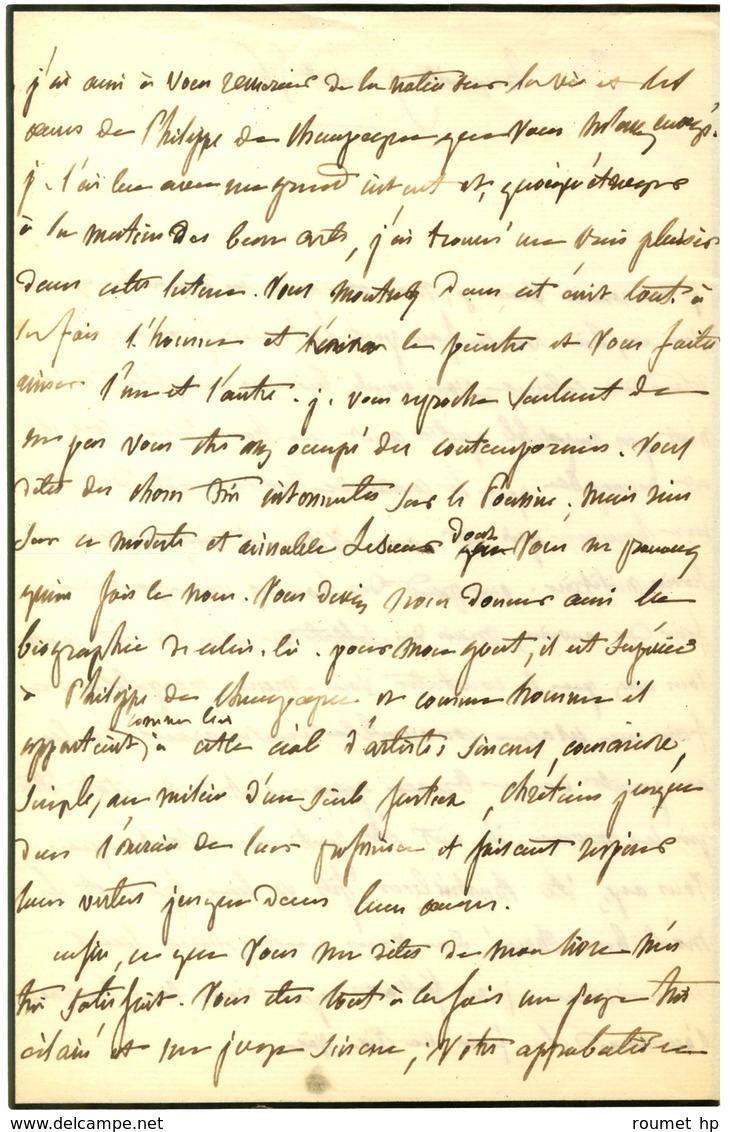 j'ai aussi à vous remercier de la notice sur la vie et les
œuvres de Philippe de Champagne que vous m'avez envoyé.
je l'ai lue avec un grand intérêt et, quoique étranger
à la matière des beaux arts, j'ai trouvé un vrai plaisir
dans cette lecture. Vous montrez dans cet écrit tout à
la fois l'homme et le peintre et vous faites
aimer l'un et l'autre. je vous reproche seulement de
ne pas vous être assez occupé des contemporains. Vous
dites des choses très intéressantes sur le Poussin; mais rien
sur ce modeste et aimable Lesueur dont vous ne prononcez
qu'une fois le nom. Vous deviez nous donner aussi la
biographie de celui-là. pour mon goût, il est supérieur
à Philippe de Champagne et comme homme il
appartient comme lui à cette école d'artistes sincères,
simples, au milieu d'un siècle fastueux, chrétiens jusque
dans l'exercice de leur profession et faisant respirer
leurs vertus jusque dans leurs œuvres.
enfin, ce que vous me dites de mon livre m'a
très satisfait. Vous êtes tout à la fois un juge très
éclairé et un juge sincère; votre approbation
roumet hp